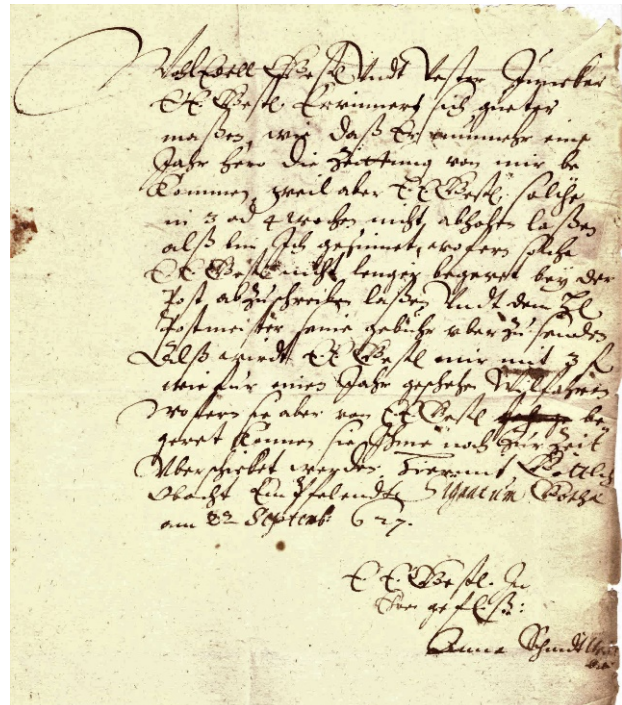 WolEdell Gestr. Undt Vester Juncker
E E Gestr. Errinnert sich gueter
maßen, wie daß Er nunmehr eine
Jahr hero die Zeittung von mir be
kommen, weil aber E E Gestr. solche
in 3 od 4 wochen nicht abholen laßen
alß bin Ich gesinnet, wofern solche
E E Gestr nicht lenger begeret bey der
Post abzuschreiben laßen Undt dem H
Postmeister seine gebühr uberzusenden
Alß wirdt E E Gestr mir mit 3 f
wie für einen Jahr geschehen Wilfahren
wofern sie aber von E E Gestr be
geret können sie Ihme noch zur Zeit
Uberschicket werden, Hiermit Götlich
Obacht Empfelendt Signatum
am 22 Septemb. 627.
E E Gestr. In
Ehren geflißn:
Anna Schmidt